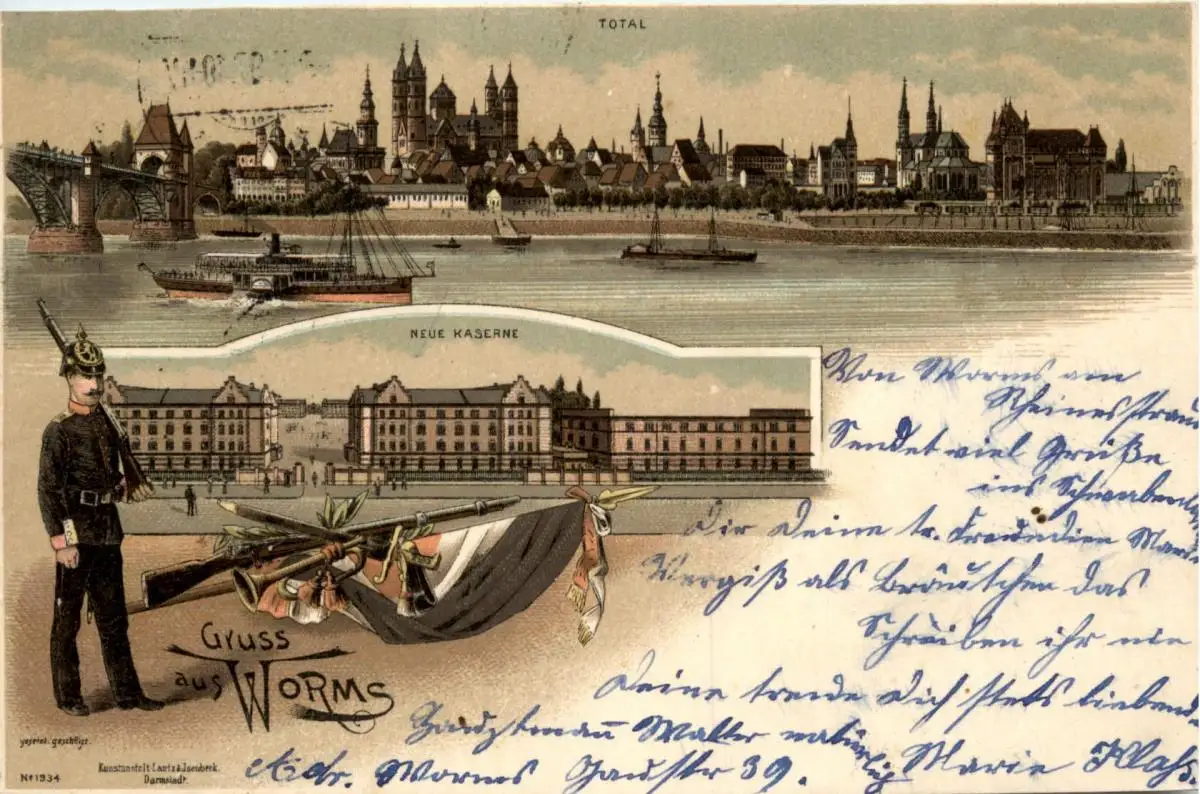 TOTAL
NEUE KASERNE
Von Worms am
Rheinesstrand
Sendet viel Grüße
ins Schwabenl
Dir Deine tr. Freundin Marie
Vergiß als Bräutchen das
Schreiben ihr nie
Deine treue Dich stets liebend
Hauptmann Walter natürlich Marie
Adr. Worms Gaustr 39.
Gruss
aus Worms
gesetzl. geschützt.
Nº 1934
Kunstanstalt Lautz & Isenbeck.
Darmstadt.